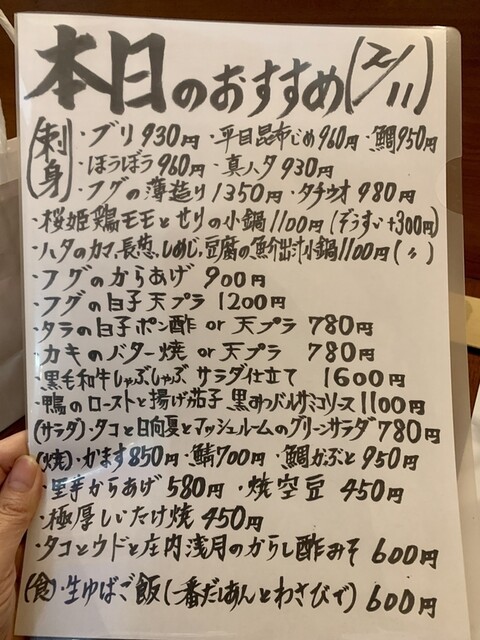 本日のおすすめ(2/11)
(刺身)・ブリ930円 ・平目昆布じめ960円 ・鯛950円
・ほうぼう960円 ・真ハタ930円
・フグの薄造り1350円 ・タチウオ980円
・桜姫鶏モモとせりの小鍋1100円(ぞうすい+300円)
・ハタのカマ、長葱、しめじ、豆腐の魚介出汁小鍋1100円(〃)
・フグのからあげ900円
・フグの白子天プラ1200円
・タラの白子ポン酢or天プラ780円
・カキのバター焼or天プラ780円
・黒毛和牛しゃぶしゃぶ サラダ仕立て1600円
・鴨のローストと揚げ茄子 黒みつバルサミコソース1100円
(サラダ)・タコと日向夏とマッシュルームのグリーンサラダ780円
(焼)・かます850円・鯖700円・鯛かぶと950円
・里芋からあげ580円・焼空豆450円
・極厚しいたけ焼450円
・タコとウドと庄内浅月のからし酢みそ600円
(食)・生ゆばご飯(一番だしあんとわさびで)600円